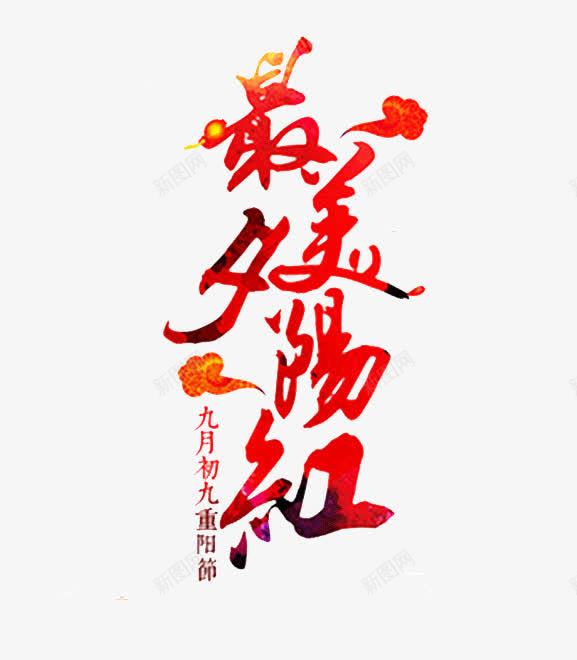 最美夕陽紅
九月初九重阳節
新图网
新图网
新图网
新图网